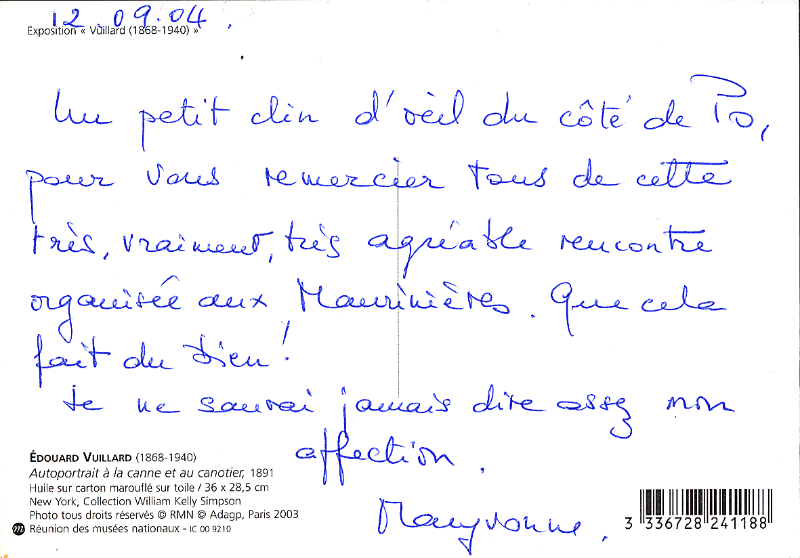 12.09.04.
Exposition « Vuillard (1868-1940) »
Un petit clin d'œil du côté de Po,
pour vous remercier tous de cette
très, vraiment, très agréable rencontre
organisée aux Maurinières. Que cela
fait du bien!
Je ne saurai jamais dire assez mon
affection.
Maryvonne.
ÉDOUARD VUILLARD (1868-1940)
Autoportrait à la canne et au canotier, 1891
Huile sur carton marouflé sur toile / 36 x 28,5 cm
New York, Collection William Kelly Simpson
Photo tous droits réservés © RMN © Adagp, Paris 2003
m Réunion des musées nationaux - IC 00 9210
3 336728 241188